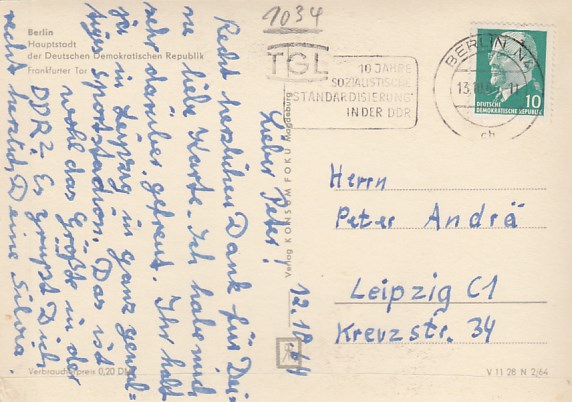 1034
Berlin
Hauptstadt
der Deutschen Demokratischen Republik
Frankfurter Tor
TGL
10 JAHRE
SOZIALISTISCHE
STANDARDISIERUNG
IN DER DDR
BERLIN N 4
13.
ch
DEUTSCHE
DEMOKRATISCHE REPUBLIK
10
12. 10. 64
Lieber Peter!
Recht herzlichen Dank für Dei-
ne liebe Karte. Ich habe mich
sehr darüber gefreut. Ihr habt
ja in Leipzig ein ganz gewal-
tiges Sportstadion. Das ist
wohl das Größte in der
DDR? Es grüßt Dich
recht herzlich Deine Silvia.
Verlag KONSUM FOKU Magdeburg
Herrn
Peter Andrä
Leipzig C1
Kreuzstr. 34
Verbraucherpreis 0,20 DM
V 11 28 N 2/64